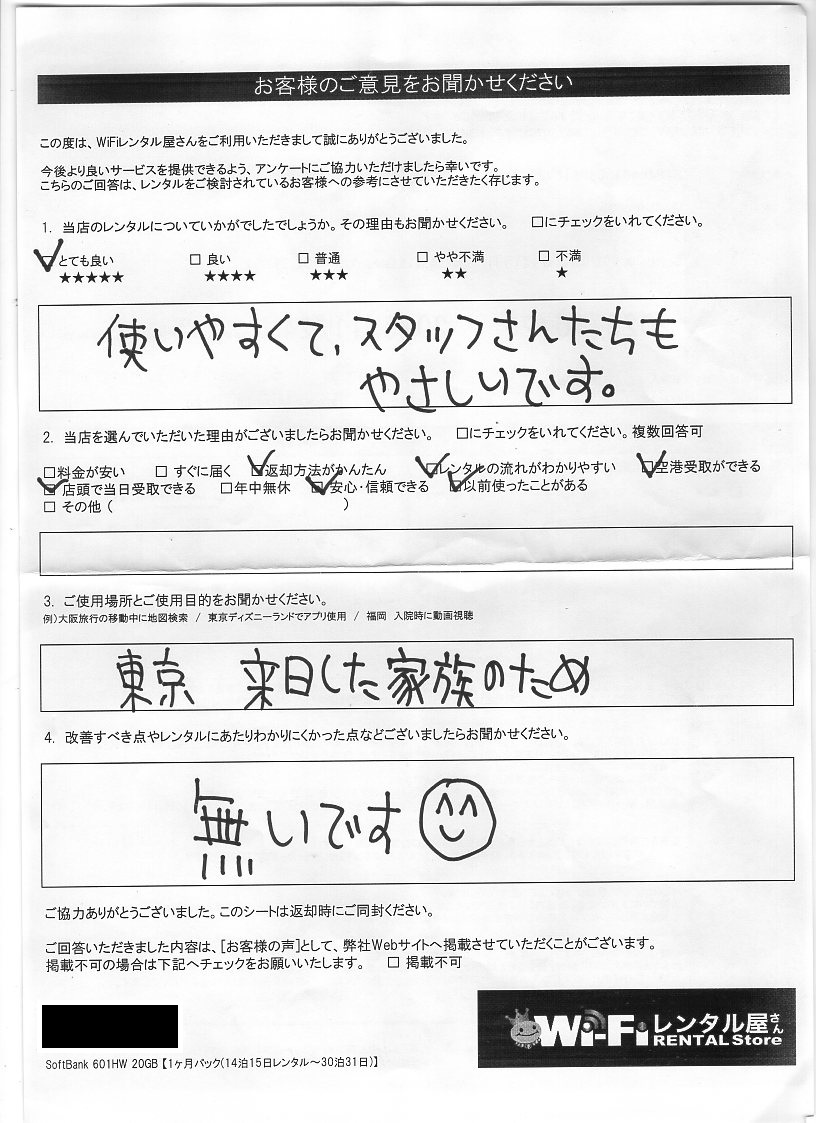 お客様のご意見をお聞かせください
この度は、WiFiレンタル屋さんをご利用いただきまして誠にありがとうございました。
今後より良いサービスを提供できるよう、アンケートにご協力いただけましたら幸いです。
こちらのご回答は、レンタルをご検討されているお客様への参考にさせていただきたく存じます。
1. 当店のレンタルについていかがでしたでしょうか。その理由もお聞かせください。 □にチェックをいれてください。
☑とても良い □ 良い □ 普通 □ やや不満 □ 不満
★★★★★ ★★★★ ★★★ ★★ ★
使いやすくて、スタッフさんたちも
やさしいです。
2. 当店を選んでいただいた理由がございましたらお聞かせください。 □にチェックをいれてください。複数回答可
□料金が安い □ すぐに届く ☑返却方法がかんたん ☑レンタルの流れがわかりやすい ☑空港受取ができる
☑ 店頭で当日受取できる □年中無休 ☑ 安心・信頼できる ☑以前使ったことがある
□ その他 ( )
3. ご使用場所とご使用目的をお聞かせください。
例)大阪旅行の移動中に地図検索 / 東京ディズニーランドでアプリ使用 / 福岡 入院時に動画視聴
東京 来日した家族のため
4. 改善すべき点やレンタルにあたりわかりにくかった点などございましたらお聞かせください。
無いです
ご協力ありがとうございました。このシートは返却時にご同封ください。
ご回答いただきました内容は、[お客様の声]として、弊社Webサイトへ掲載させていただくことがございます。
掲載不可の場合は下記へチェックをお願いいたします。 □ 掲載不可
Wi-Fiレンタル屋さん
RENTAL Store
SoftBank 601HW 20GB【1ヶ月パック(14泊15日レンタル～30泊31日)】